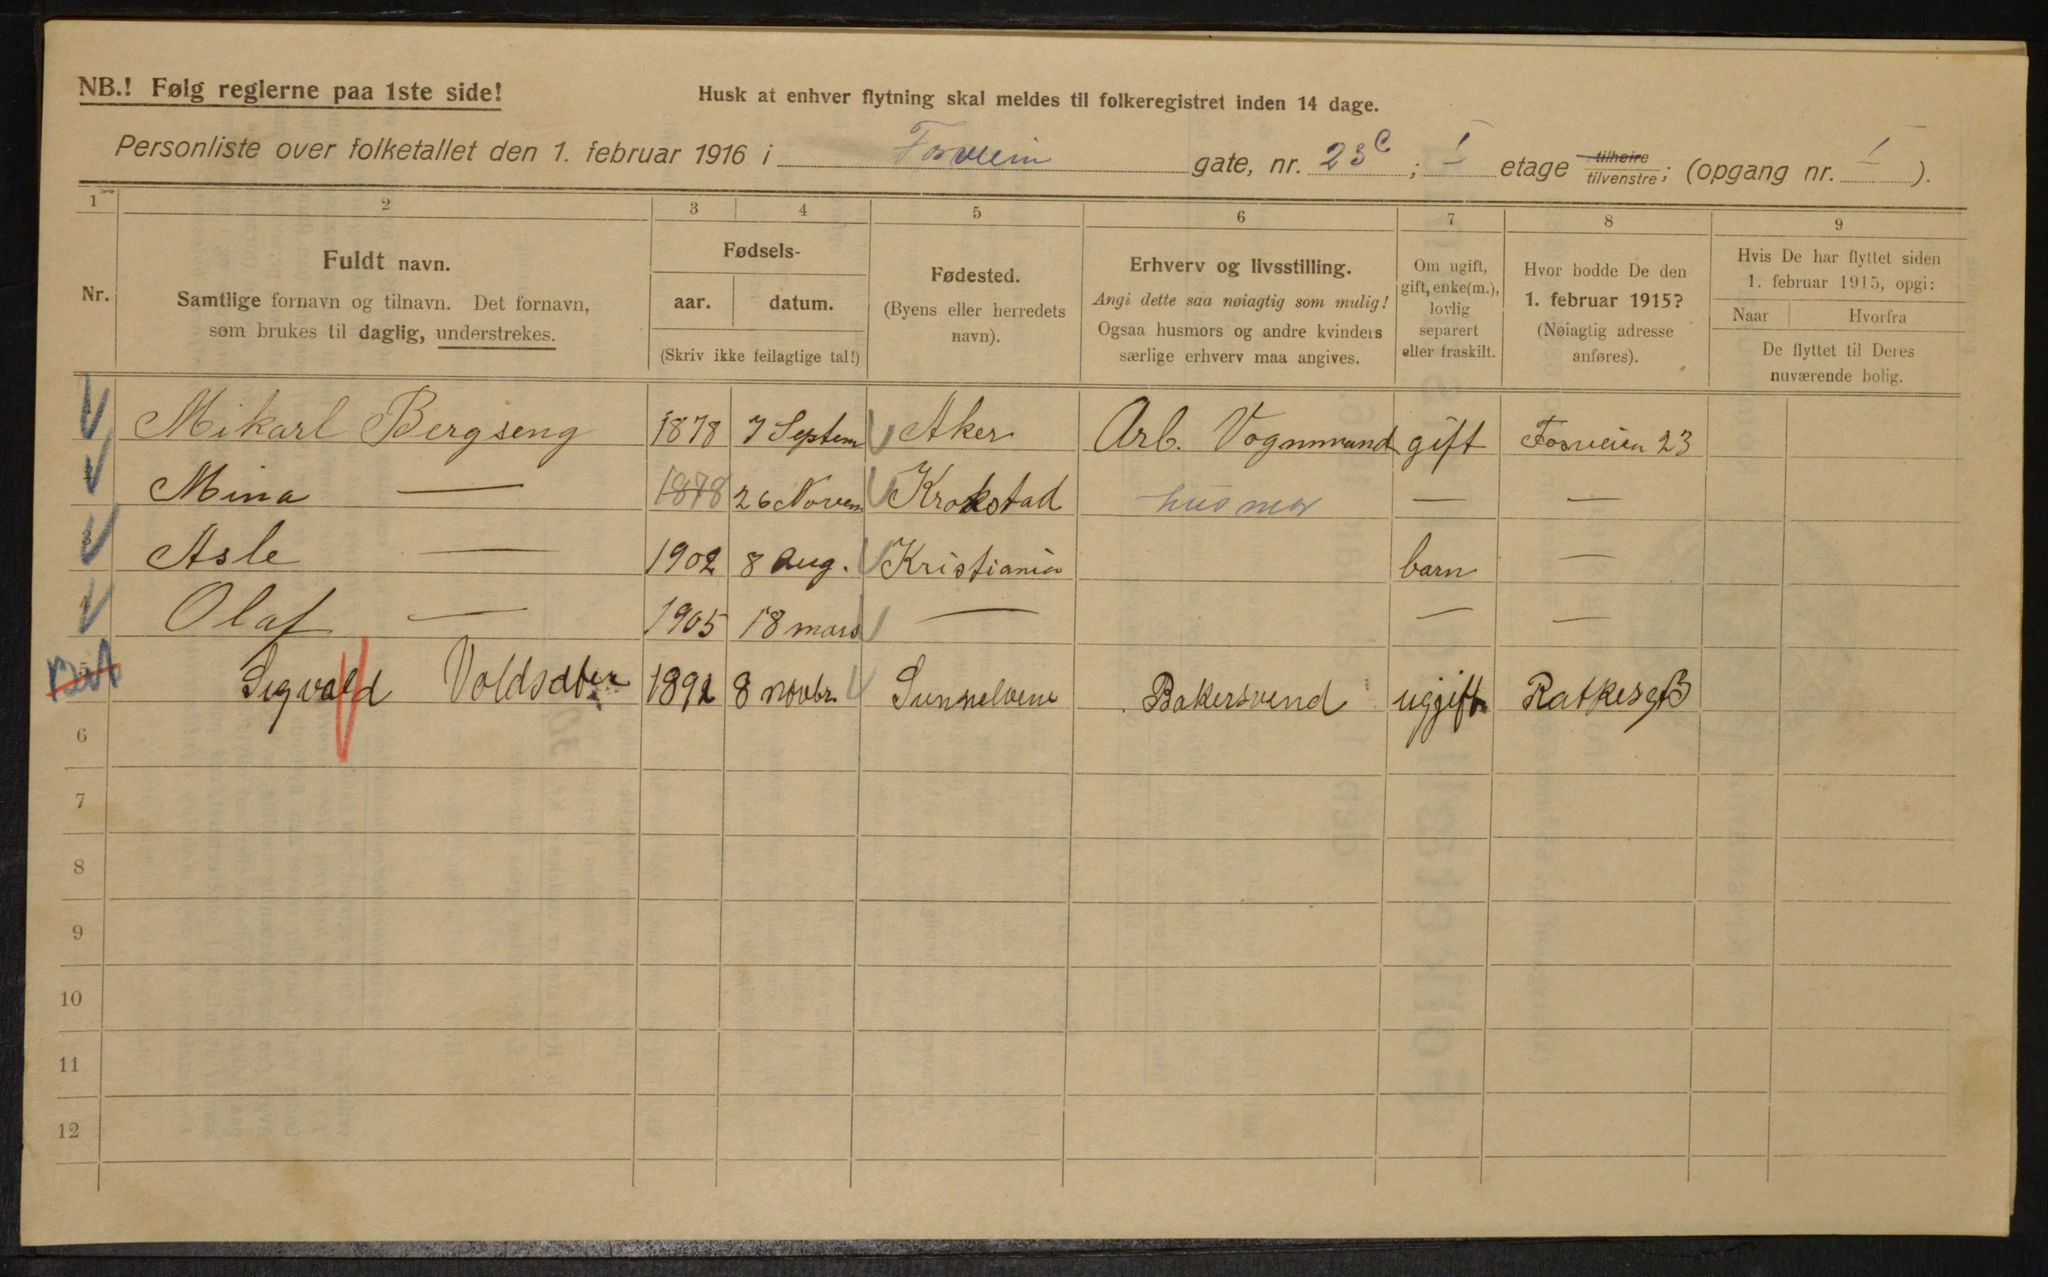 NB.! Følg reglerne paa 1ste side!
Husk at enhver flytning skal meldes til folkeregistret inden 14 dage.
Personliste over folketallet den 1. februar 1916 i Fosveien gate, nr. 23C; I etage tilhøire tilvenstre; (opgang nr. I).
1 2 3 4 5 6 7 8 9
Nr.
Fuldt navn.
Samtlige fornavn og tilnavn. Det fornavn,
som brukes til daglig, understrekes.
Fødsels-
aar. datum.
(Skriv ikke feilagtige tal!)
Fødested.
(Byens eller herredets
navn).
Erhverv og livsstilling.
Angi dette saa nøiagtig som mulig!
Ogsaa husmors og andre kvinders
særlige erhverv maa angives.
Om ugift,
gift, enke(m.),
lovlig
separert
eller fraskilt.
Hvor bodde De den
1. februar 1915?
(Nøiagtig adresse
anføres).
Hvis De har flyttet siden
1. februar 1915, opgi:
Naar Hvorfra
De flyttet til Deres
nuværende bolig.
Mikarl Bergseng 1878 7 Septem Aker Arb. Vognmand gift Fosveien 23
Mina — 1878 26 Novem Krokstad husmor — —
Asle — 1902 8 Aug. Kristiania barn —
Olaf — 1905 18 mars — — —
5 Sigvald 1892 8 novbr. Bakersvend ugift
6
7
8
9
10
11
12